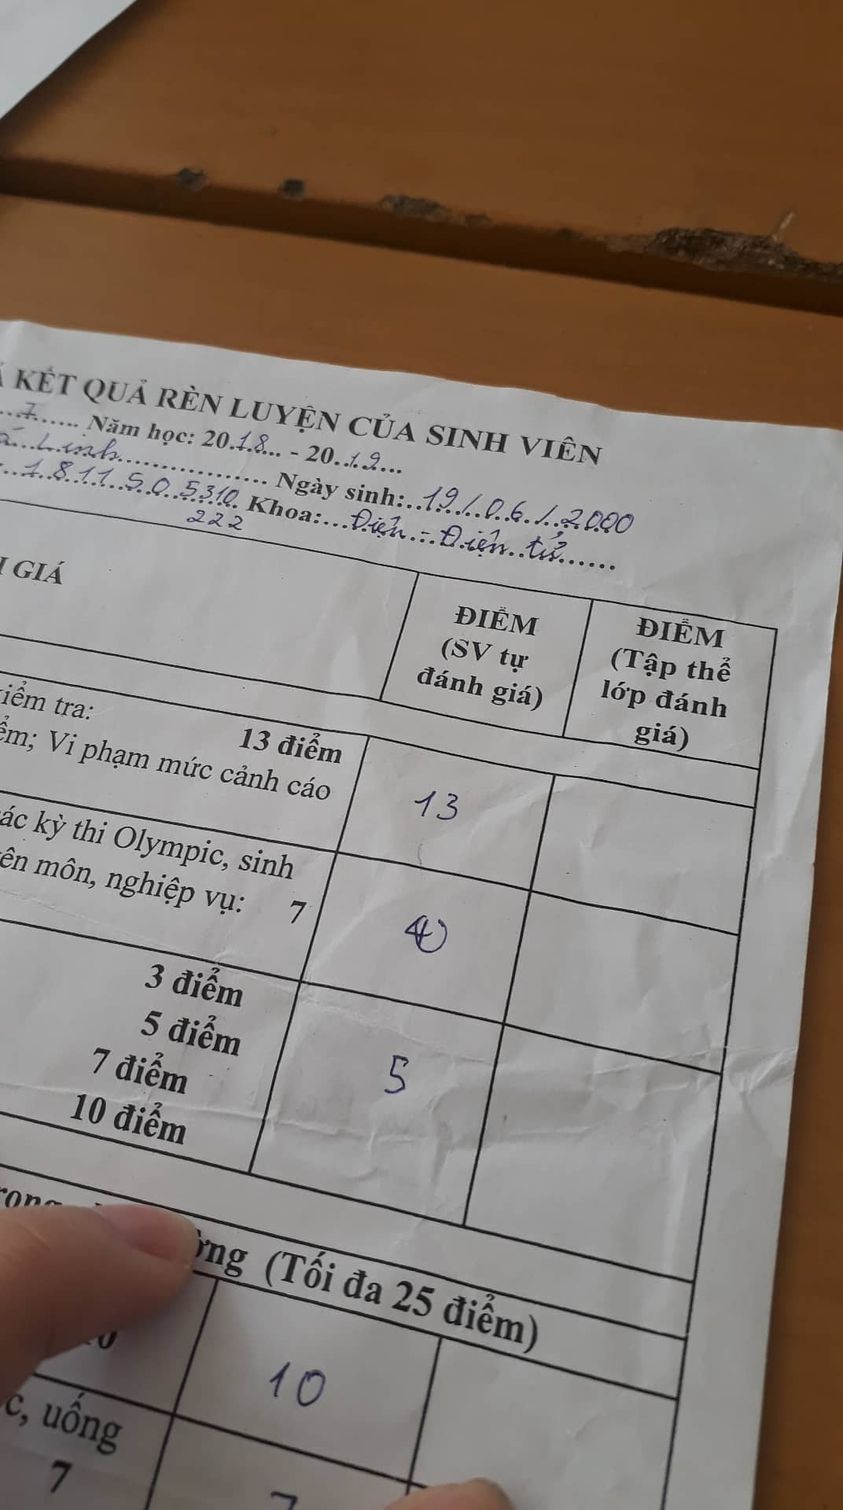 KẾT QUẢ RÈN LUYỆN CỦA SINH VIÊN
Năm học: 2018 - 2019
Linh Ngày sinh: 19/06/2000
1811505310 Khoa: Điện - Điện tử
222
GIÁ
ĐIỂM
(SV tự
đánh giá)
ĐIỂM
(Tập thể
lớp đánh
giá)
tra:
13 điểm
Vi phạm mức cảnh cáo
13
kỳ thi Olympic, sinh
môn, nghiệp vụ: 7
5
3 điểm
5 điểm
7 điểm
10 điểm
(Tối đa 25 điểm)
10
uống
7